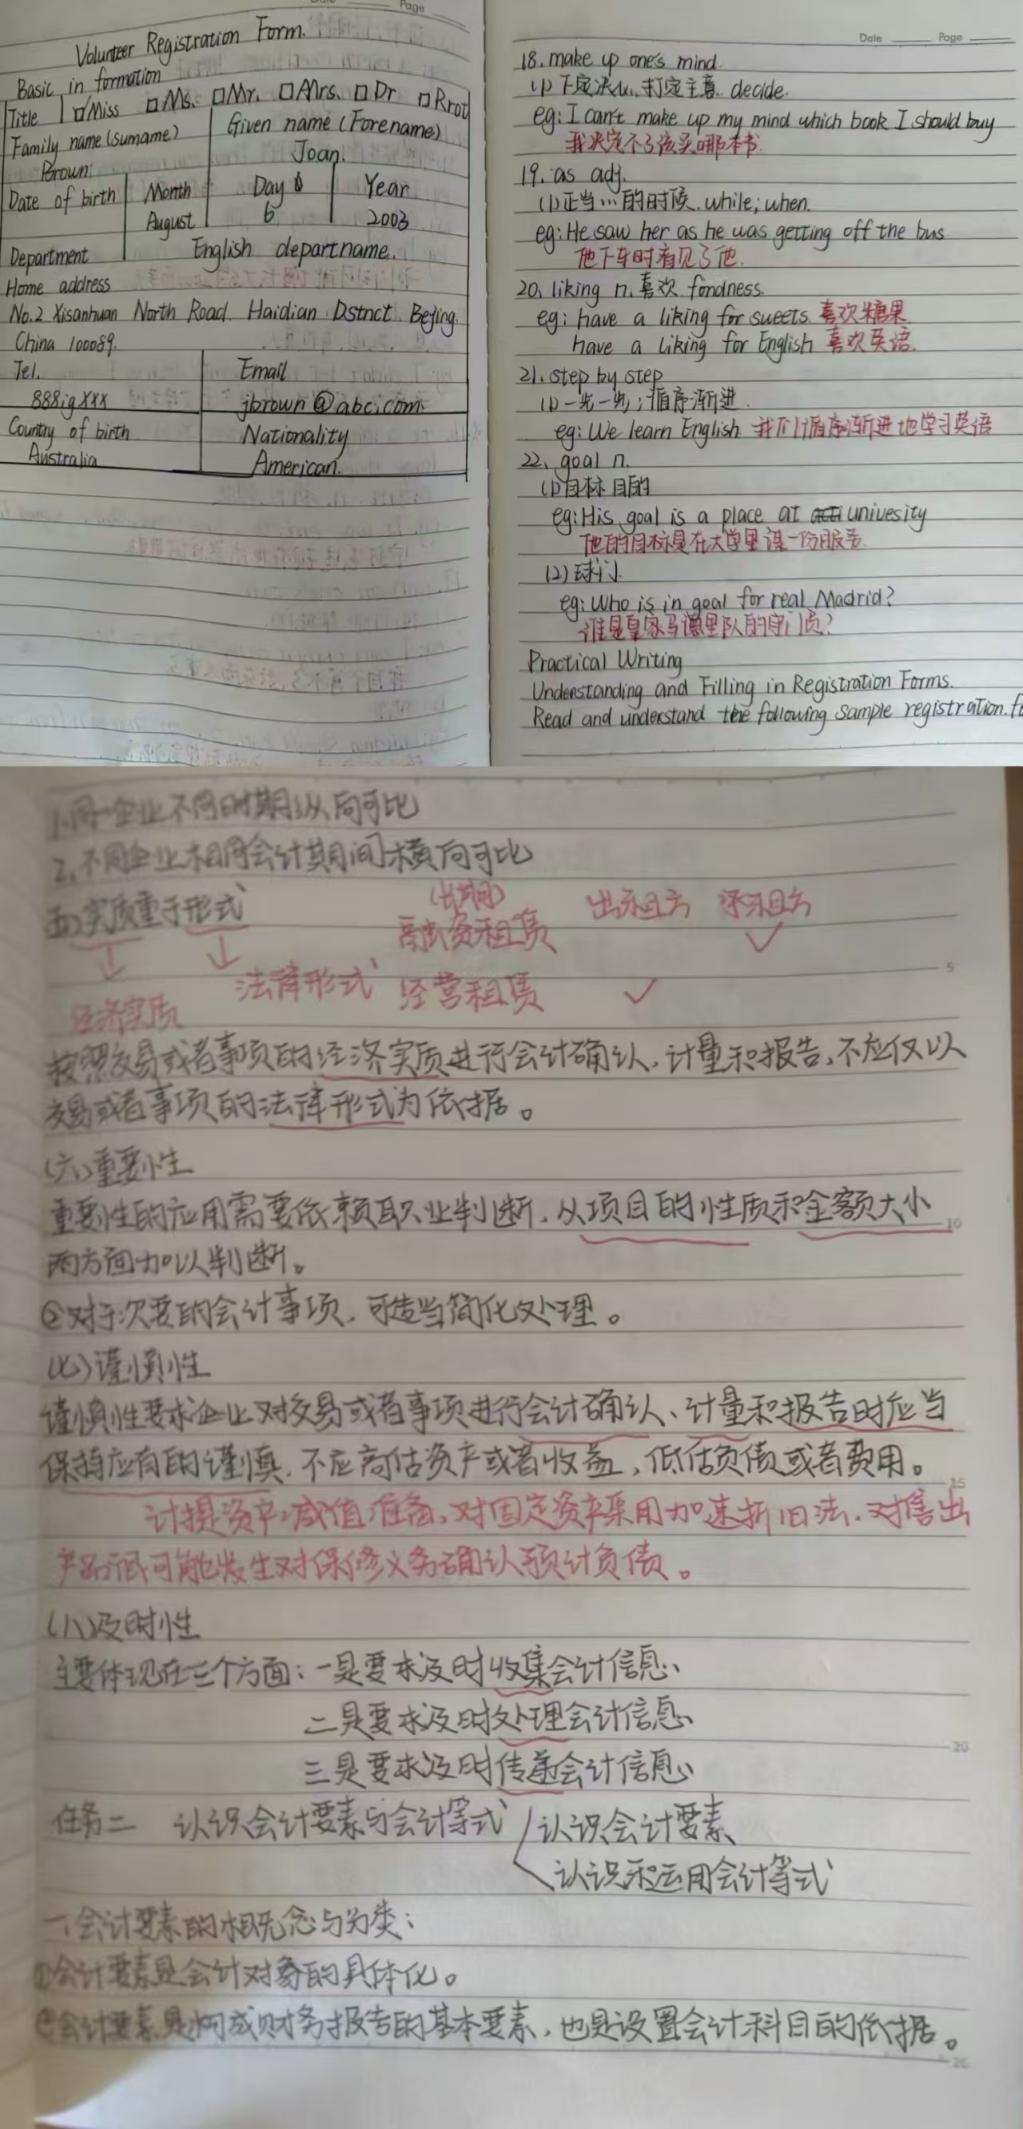 Date Page
Volunteer Registration Form.
Basic in formation
Title ☑Miss □Ms. □Mr. □Mrs. □Dr □Rrot
Family name (sumame) Given name (Forename)
Brown. Joan.
Date of birth Month Day Year
August 6 2003
Department English departname.
Home address
No.2 Xisanhuan North Road. Haidian Dstnct Bejing
China 100089.
Tel. Email
888.ig XXX jbrown@abc.com.
Country of birth Nationality
Australia American.
Date Page
18. make up one's mind.
(1) 下定决心,打定主意 decide.
eg: I can't make up my mind which book I should buy
我决定不了该买哪本书.
19. as adj.
(1) 正当…的时候. while; when.
eg: He saw her as he was getting off the bus
他下车时看见了他.
20. liking n. 喜欢 fondness.
eg: have a liking for sweets. 喜欢糖果
have a liking for English 喜欢英语.
21. step by step
(1) 一步一步;循序渐进.
eg: We learn English 我们循序渐进地学习英语
22. goal n.
(1) 目标 目的
eg: His goal is a place at univesity
他的目标是在大学里谋一份服务.
(2) 球门.
eg: Who is in goal for real Madrid?
谁是皇家马德里队的守门员?
Practical Writing
Understanding and Filling in Registration Forms.
Read and understand the following sample registration.fo
1.同一企业不同时期纵向可比
2.不同企业相同会计期间横向可比
五)实质重于形式
经济实质 法律形式
(长期)
融资租赁 出租方 承租方 ✓
经营租赁 ✓
5
按照交易或者事项的经济实质进行会计确认、计量和报告,不应仅以
交易或者事项的法律形式为依据。
(六)重要性
重要性的应用需要依赖职业判断,从项目的性质和金额大小
10
两方面加以判断。
②对于次要的会计事项,可适当简化处理。
(七)谨慎性
谨慎性要求企业对交易或者事项进行会计确认、计量和报告时应当
保持应有的谨慎,不应高估资产或者收益,低估负债或者费用。
15
计提资产减值准备,对固定资产采用加速折旧法,对售出
产品很可能发生对保修义务确认预计负债。
(八)及时性
主要体现在三个方面:一是要求及时收集会计信息、
二是要求及时处理会计信息、
20
三是要求及时传递会计信息、
任务二 认识会计要素与会计等式 认识会计要素
认识和运用会计等式
一、会计要素的概念与分类:
①会计要素是会计对象的具体化。
②会计要素是构成财务报告的基本要素,也是设置会计科目的依据。
25